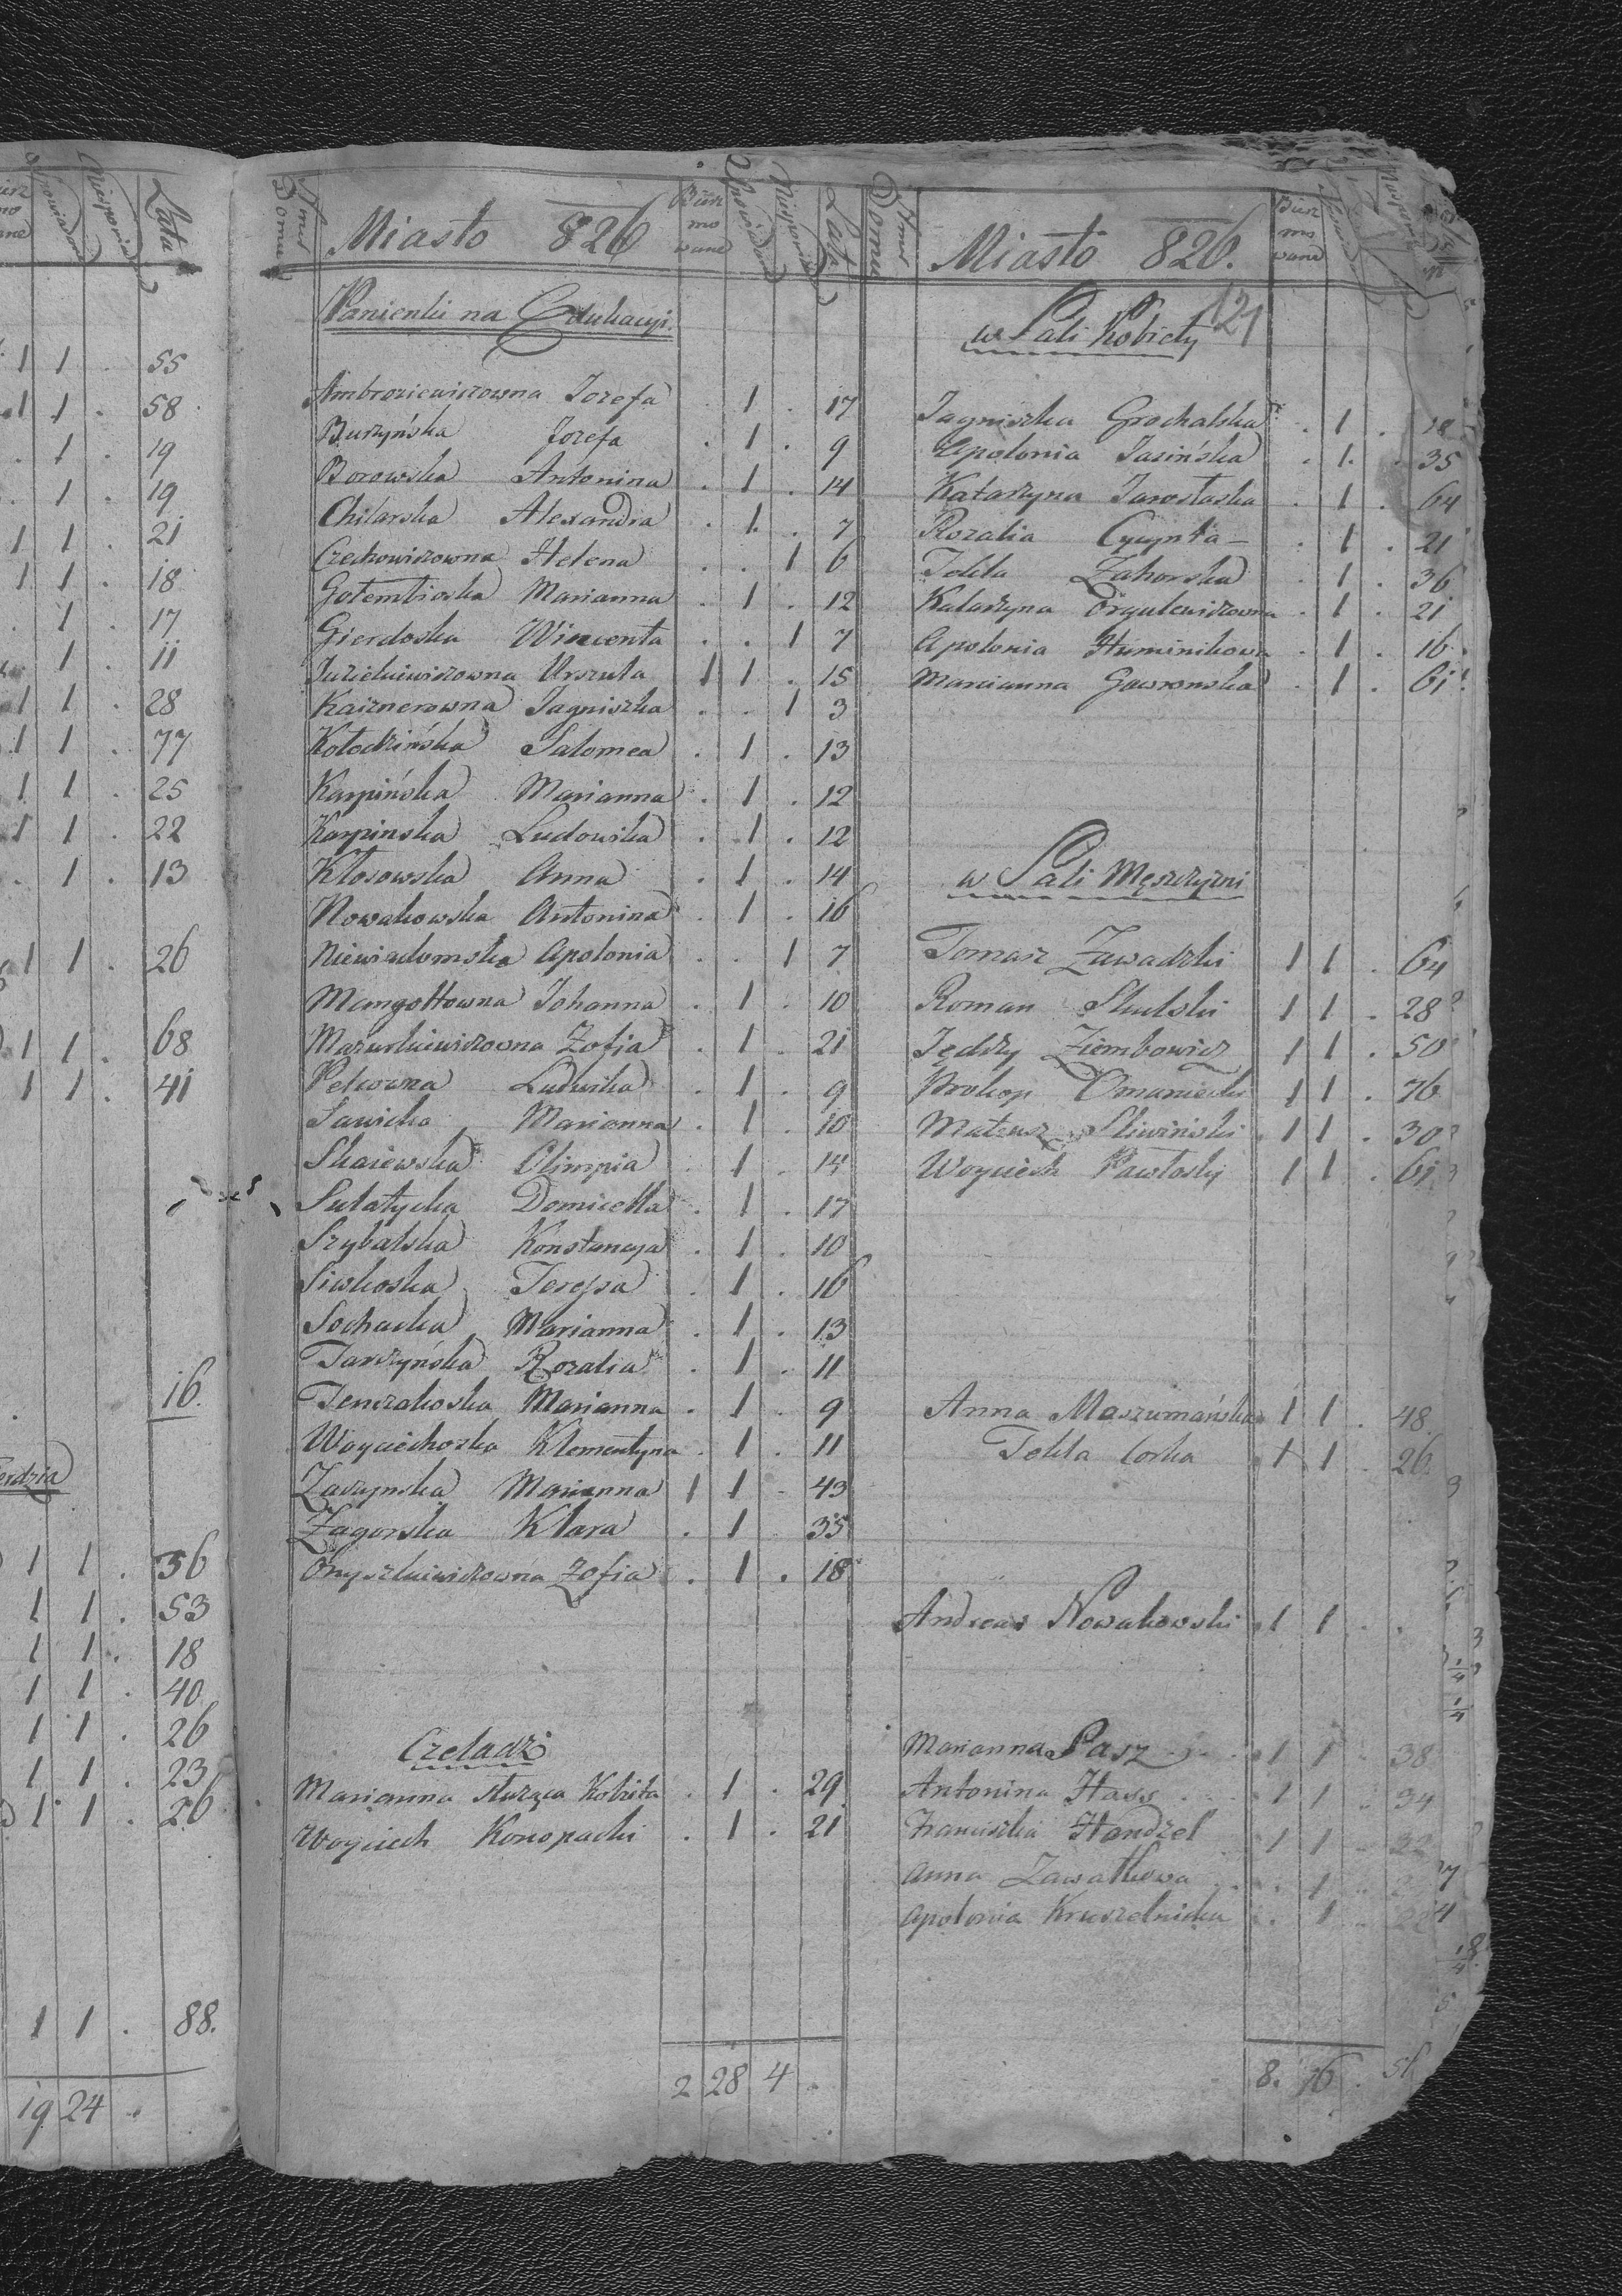 Lata
1 1 . 55
1 1 . 58
. 1 . 19
. 1 . 19
1 1 . 21
1 1 . 18
. 1 . 17
1 . 11
1 1 . 28
1 1 . 77
1 1 . 25
1 1 . 22
. 1 . 13
1 1 . 26
1 1 . 68
1 1 . 41
16.
1 1 . 36
1 1 . 53
1 1 . 18
1 1 . 40
1 1 . 26
1 1 . 23
1 1 . 26
1 1 . 88.
19 24 .
Nmr Domu Miasto 826 Bierz mo wane Spowiadan Niespowiad Lata
Panienki na Edukacyi.
Ambroziewiczowna Jozefa . 1 . 17
Burzyńska Jozefa . 1 . 9
Borowska Antonina . 1 . 14
Chilarska Alexandra . 1 . 7
Czechowiczowna Helena . . 1 6
Gołembioska Marianna . 1 . 12
Gierdoska Wincenta . . 1 7
Juzielwiczowna Urszula 1 1 . 15
Kaiznerowna Jagniszka . . 1 3
Kołodzińska Salomea . 1 . 13
Karpińska Marianna . 1 . 12
Karpinska Ludowika . 1 . 12
Kłosowska Anna . 1 . 14
Nowakowska Antonina . 1 . 16
Niewiadomska Apolonia . . 1 7
Mangottowna Johanna . 1 . 10
Mazurkiewiczowna Zofia . 1 . 21
Pelcowna Ludwika . 1 . 9
Sawicka Marianna . 1 . 10
Skaiewska Olimpia . 1 . 14
Sulatycka Domicella . 1 . 17
Szybalska Konstancya . 1 . 10
Siwkoska Teressa . 1 . 16
Sochacka Marianna . 1 . 13
Tarczyńska Rozalia . 1 . 11
Tenczakoska Marianna . 1 . 9
Woyciechoska Klementyna . 1 . 11
Zaszynska Marianna 1 1 . 43
Zagorska Klara . 1 . 35
Onyszkiewiczowna Zofia . 1 . 18
Czeladź
Marianna służąca Kobita . 1 . 29
Woyciech Konopacki . 1 . 21
2 28 4 .
Nmr Domu Miasto 826. Bierz mo wane
121
w Sali Kobiety
Jagniszka Grochalska . 1 . 18
Apolonia Jasińska . 1 . 35
Katarzyna Jarosłaska . 1 . 64
Rozalia . 1 . 21
Tekla Zahorska . 1 . 36
Katarzyna Drygulewiczowna . 1 . 21
Apolonia Huminikowa . 1 . 16
Marianna Gawronska . 1 . 61
w Sali Męszczyzni
Tomasz Zawadzki 1 1 . 64
Roman Skulski 1 1 . 28
Jędrzy Ziembowicz 1 1 . 50
Prokop Omaniecki 1 1 . 76
Mateusz Sliwiński 1 1 . 30
Woyciech Pawłosky 1 1 . 61
Anna Maszumańska 1 1 . 48.
Tekla Corka 1 1 . 26.
Andreas Nowakowski 1 1 . .
Marianna Pasz 1 1 . 38
Antonina Hass 1 1 . 34
Franciszka Handzel 1 1 . 32
Anna Zawałkowa . 1 .
Apolonia Kruszelnicka . 1 .
8. 16 .